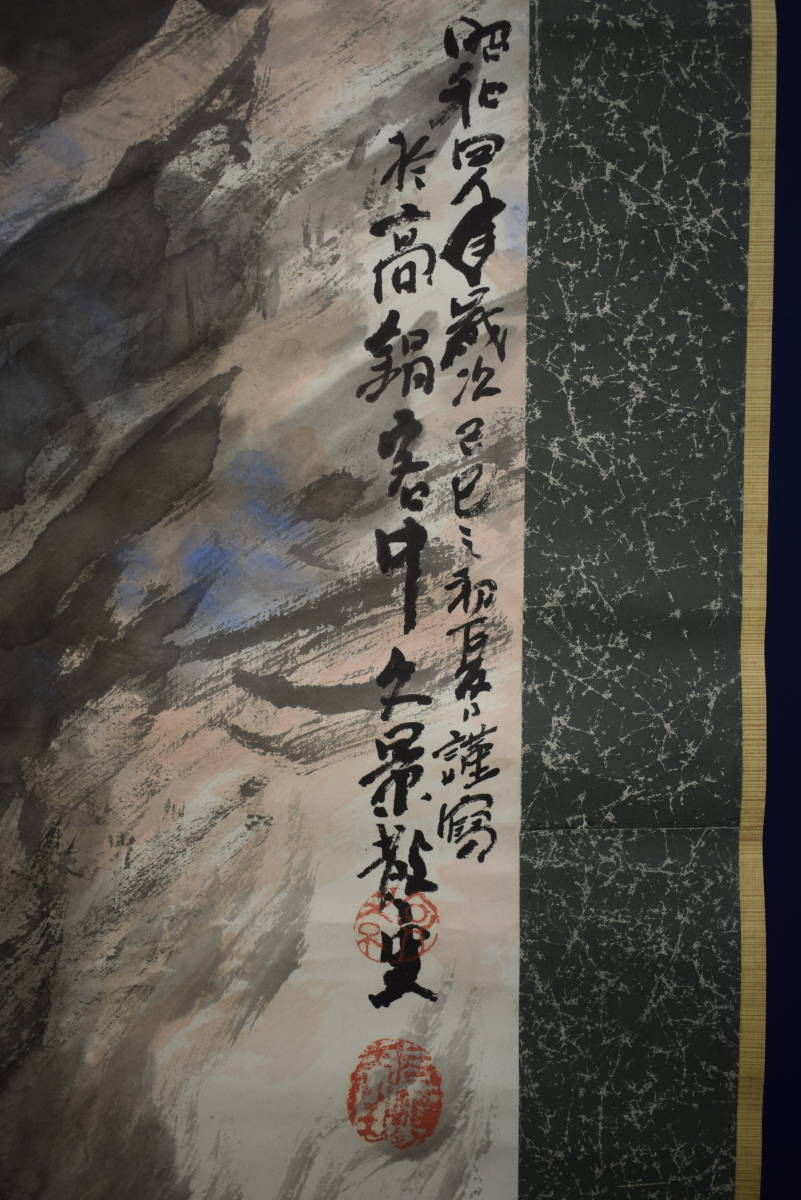 昭和四年歳次己巳之初夏日謹寫
於高鍋客中久景散史